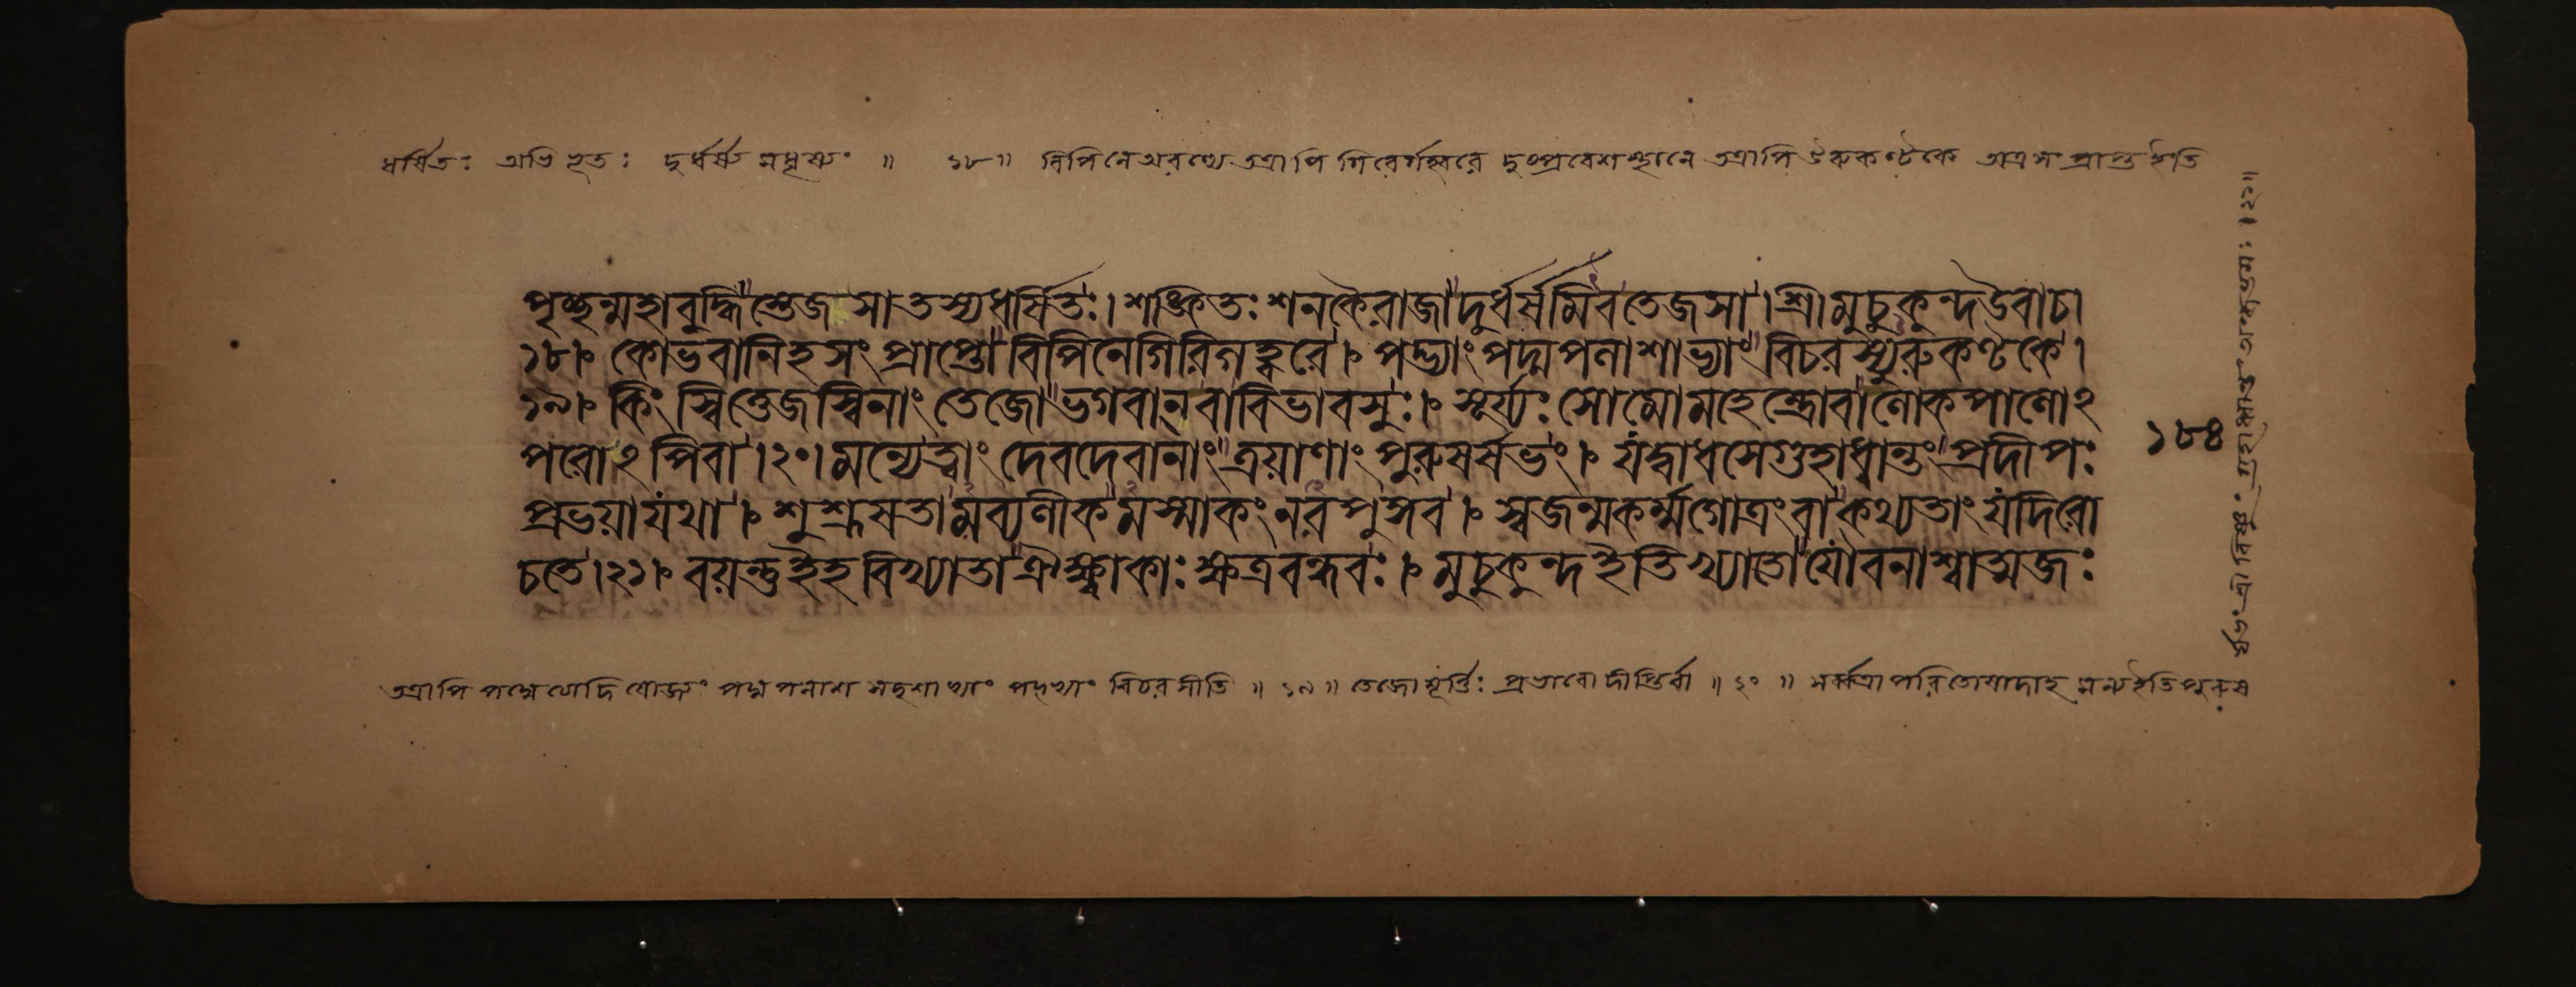 ধর্ষিতঃ অভিভূতঃ দুর্ধর্ষং মধৃষ্যং ॥ ১৮॥ বিপিনে অরণ্যে তত্রাপি গিরের্গহ্বরে দুঃপ্রবেশস্থানে তত্রাপি উরুকণ্টকে অত্র সংপ্রাপ্ত ইতি
পৃচ্ছন্মহাবুদ্ধিস্তেজসাতস্যধর্ষিতঃ। শঙ্কিতঃ শনকৈরাজাদুর্ধর্ষমিবতেজসা। শ্রীমুচুকুন্দউবাচ।
১৮। কোভবানিহসংপ্রাপ্তোবিপিনেগিরিগহ্বরে। পদ্ভ্যাংপদ্মপলাশাভ্যাং বিচরস্যুরুকণ্টকে।
১৯। কিং স্বিত্তেজস্বিনাং তেজোভগবান্ বাবিভাবসুঃ। সূর্য্যঃ সোমোমহেন্দ্রোবালোকপালোঽ
পরোঽপিবা।২০। মন্যেত্বাং দেবদেবানাং ত্রয়াণাং পুরুষর্ষভং। যদ্বাধসেগুহাধ্বান্তং প্রদীপঃ
প্রভয়াযথা। শুশ্রূষতামব্যলীকমস্মাকং নরপুঙ্গব। স্বজন্মকর্ম্মগোত্রংবাকথ্যতাং যদিরো
চতে।২১। বয়ন্তুইহবিখ্যাতাঐক্ষ্বাকাঃ ক্ষত্রবন্ধবঃ। মুচুকুন্দইতিখ্যাতোযৌবনাশ্বাত্মজঃ
১৮৪
তত্রাপি পদ্ভ্যাং পদ্মপলাশসদৃশাভ্যাং বিচরসীতি ॥ ১৯॥ তেজোমূর্ত্তিঃ প্রভাবো দীপ্তির্বা ॥ ২০ ॥ পরিতোষাদাহ মন্যইতি পুরুষ